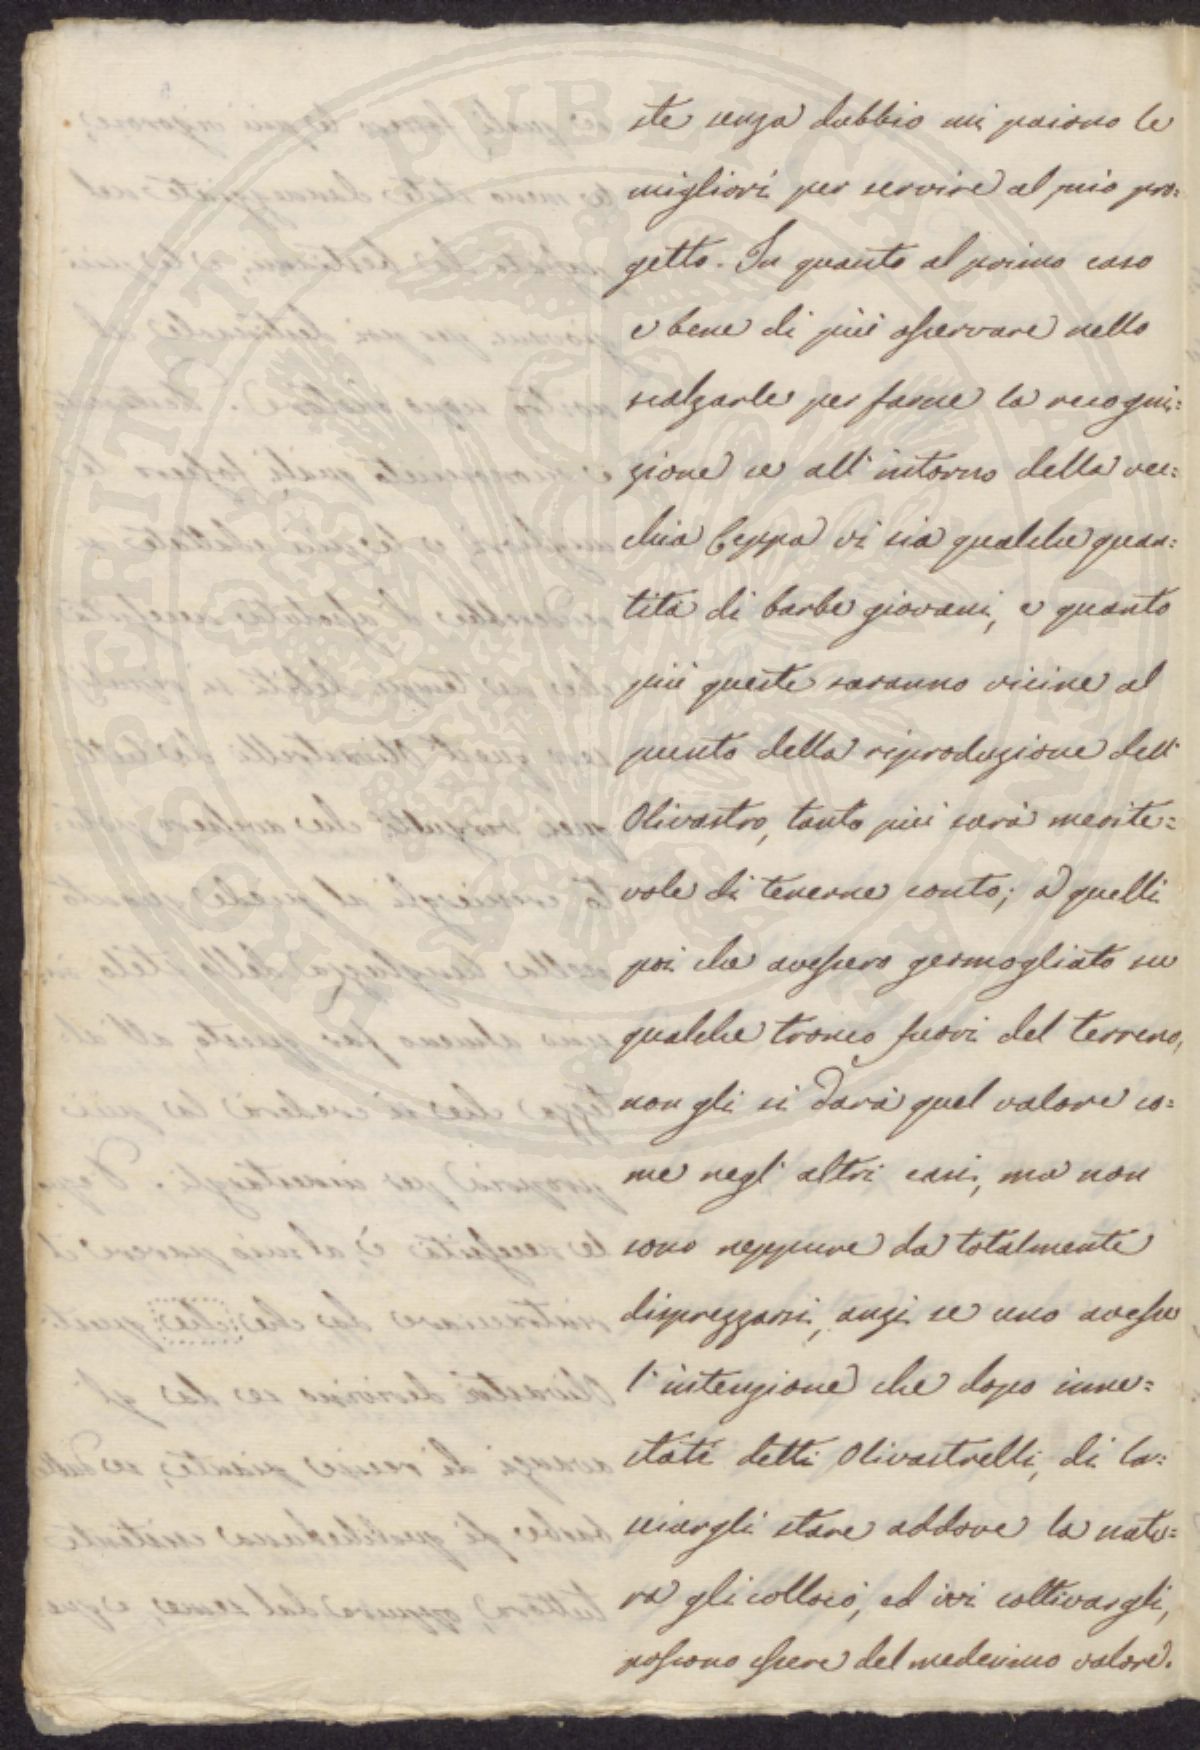 ste senza dubbio mi paiono le
migliori per servire al mio pro=
getto. In quanto al primo caso
e bene di più osservare nello
scalzarle per farne la recogni=
zione se all' intorno della vec=
chia Ceppa vi sia qualche quan=
tità di barbe giovani, e quanto
più queste saranno vicine al
punto della riproduzione dell'
Olivastro, tanto più sarà merite=
vole di tenerne conto; a quelli
poi che avessero germogliato su
qualche tronco fuori del terreno,
non gli si darà quel valore co=
me negl' altri casi, ma non
sono neppure da totalmente
disprezzarsi, anzi se uno avesse
l' intenzione che dopo inne=
stati detti Olivastrelli, di la=
sciargli stare addove la natu=
ra gli collocò, ed ivi coltivargli,
possono essere del medesimo valore.
PROSPERITATI PUBLICAE AUGENDAE